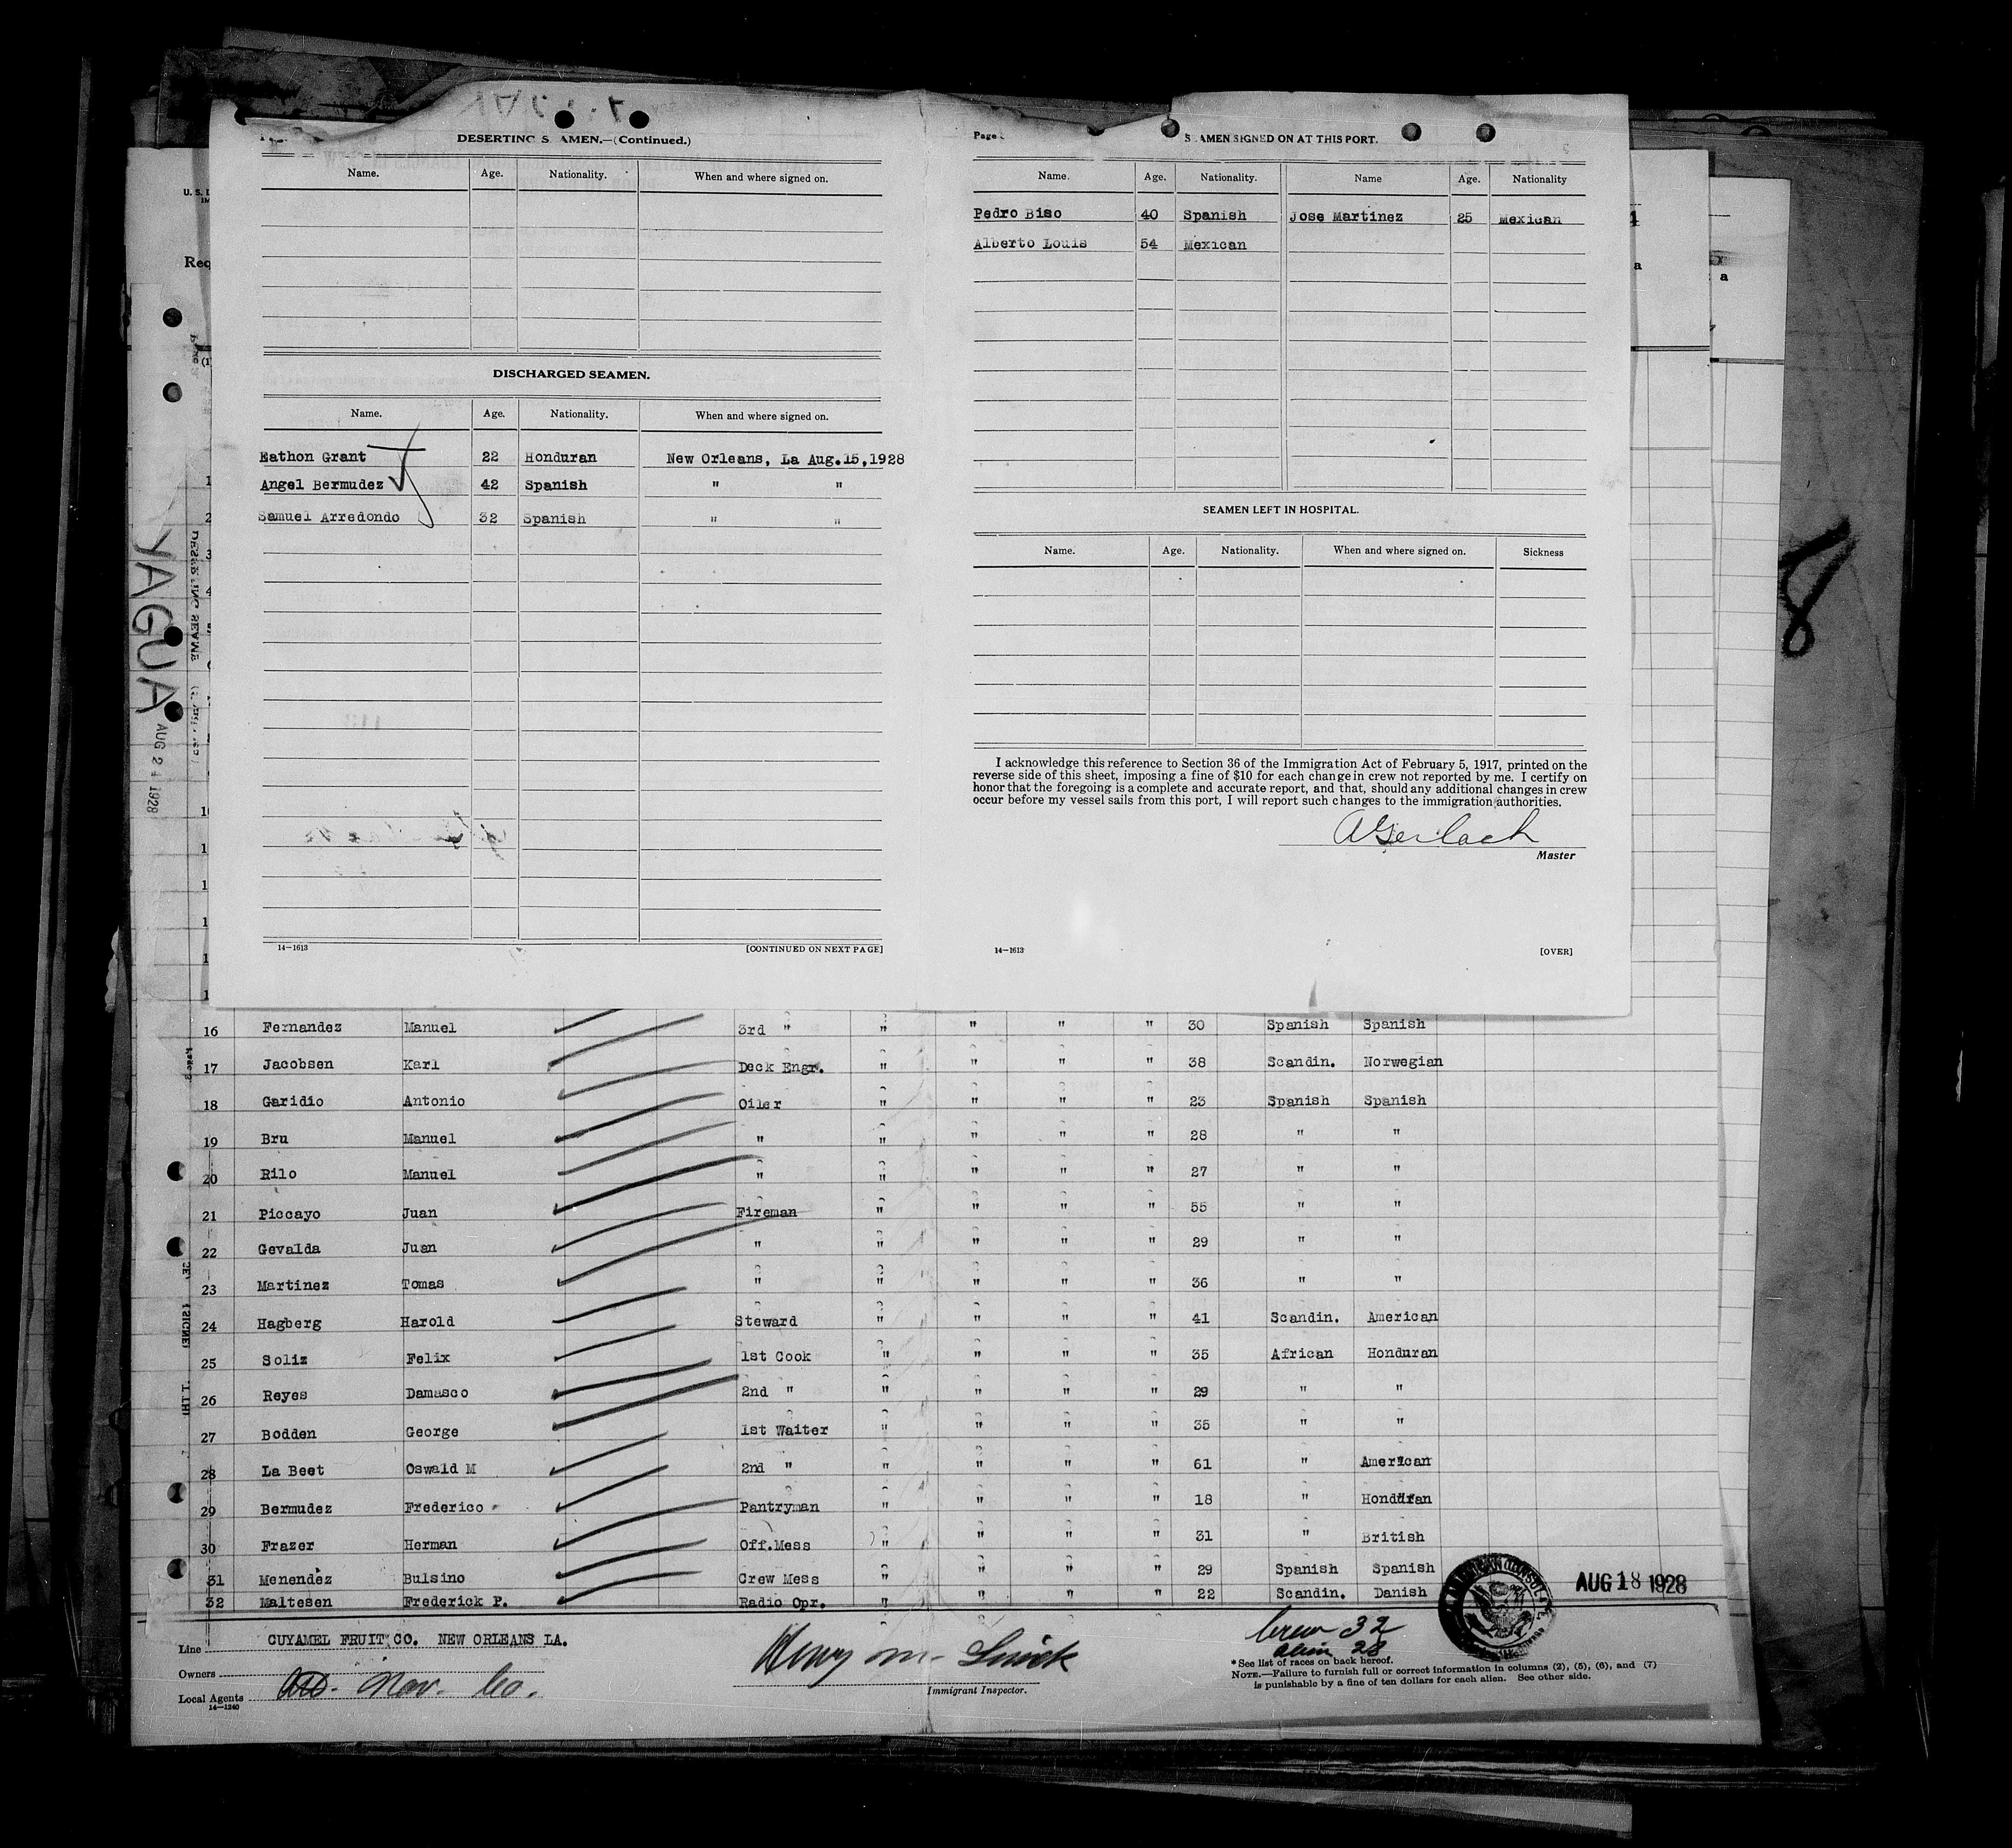 DESERTING SEAMEN.—(Continued.)
Name. Age. Nationality. When and where signed on.
DISCHARGED SEAMEN.
Name. Age. Nationality. When and where signed on.
Eathon Grant 22 Honduran New Orleans, La Aug.15,1928
Angel Bermudez 42 Spanish " "
Samuel Arredondo 32 Spanish " "
14—1613 [CONTINUED ON NEXT PAGE]
Page
SEAMEN SIGNED ON AT THIS PORT.
Name. Age. Nationality. Name Age. Nationality
Pedro Biso 40 Spanish Jose Martinez 25 Mexican
Alberto Louis 54 Mexican
SEAMEN LEFT IN HOSPITAL.
Name. Age. Nationality. When and where signed on. Sickness
I acknowledge this reference to Section 36 of the Immigration Act of February 5, 1917, printed on the
reverse side of this sheet, imposing a fine of $10 for each change in crew not reported by me. I certify on
honor that the foregoing is a complete and accurate report, and that, should any additional changes in crew
occur before my vessel sails from this port, I will report such changes to the immigration authorities.
AGerlach
Master
14—1613 [OVER]
YAGUA
AUG 24 1928
8
16 Fernandez Manuel 3rd " " " " " 30 Spanish Spanish
17 Jacobsen Karl Deck Engr. " " " " 38 Scandin. Norwegian
18 Garidio Antonio Oiler " " " " 23 Spanish Spanish
19 Bru Manuel " " " " " 28 " "
20 Rilo Manuel " " " " " 27 " "
21 Piccayo Juan Fireman " " " " 55 " "
22 Gevalda Juan " " " " " 29 " "
23 Martinez Tomas " " " " " 36 " "
24 Hagberg Harold Steward " " " " 41 Scandin. American
25 Soliz Felix 1st Cook " " " " 35 African Honduran
26 Reyes Damasco 2nd " " " " " 29 " "
27 Bodden George 1st Waiter " " " " 35 " "
28 La Beet Oswald M 2nd " " " " " 61 " American
29 Bermudez Frederico Pantryman " " " " 18 " Honduran
30 Frazer Herman Off.Mess " " " " 31 " British
31 Menendez Bulsino Crew Mess " " " " 29 Spanish Spanish
32 Maltesen Frederick P. Radio Opr. " " " " 22 Scandin. Danish
AUG 18 1928
Line CUYAMEL FRUIT CO. NEW ORLEANS LA.
Owners
Local Agents Nav. Co.
14—1240
Henry M.
Immigrant Inspector.
Crew 32
Alien 28
* See list of races on back hereof.
NOTE.—Failure to furnish full or correct information in columns (2), (5), (6), and (7)
is punishable by a fine of ten dollars for each alien. See other side.